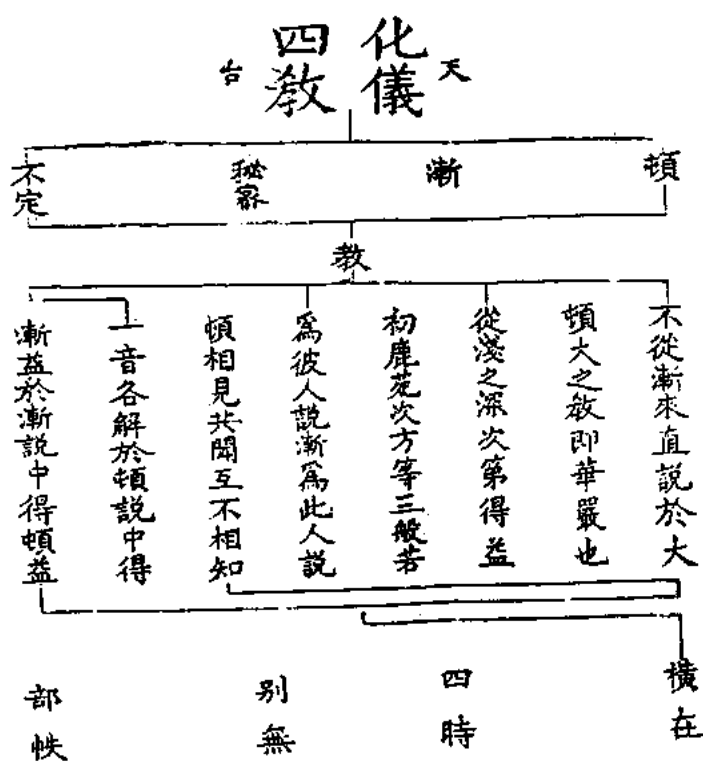 天
化儀
四教
台
頓
漸
秘密
不定
教
不從漸來直說於大
頓大之教即華嚴也
從淺之深次第得益
初鹿苑次方等三般若
爲彼人説漸爲此人説
頓相見共聞互不相知
一音各解於頓説中得
漸益於漸説中得頓益
橫在
四時
別無
部帙